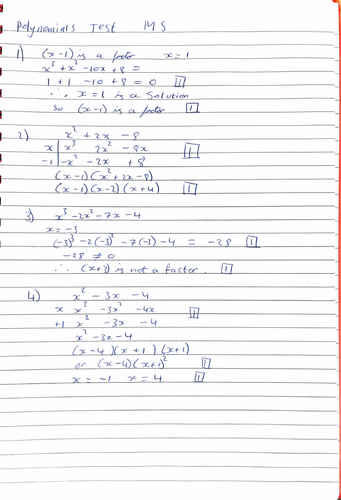 Polynomials Test MS
1) (x-1) is a factor x=1
x³ + x² -10x +8 =
1 + 1 -10 + 8 = 0 [1]
∴ x = 1 is a solution
So (x-1) is a factor [1]
2) x² + 2x - 8
x | x³ 2x² -8x [1]
-1 | -x² -2x +8
(x-1)(x²+2x-8)
(x-1)(x-2)(x+4) [1]
3) x³ -2x² -7x -4
x = -3
(-3)³ -2(-3)² -7(-3) -4 = -28 [1]
-28 ≠ 0
∴ (x+3) is not a factor. [1]
4) x² - 3x - 4
x x³ -3x² -4x [1]
+1 x² -3x -4
x² -3x -4
(x-4)(x+1)(x+1)
or (x-4)(x+1)² [1]
x = -1 x = 4 [1]